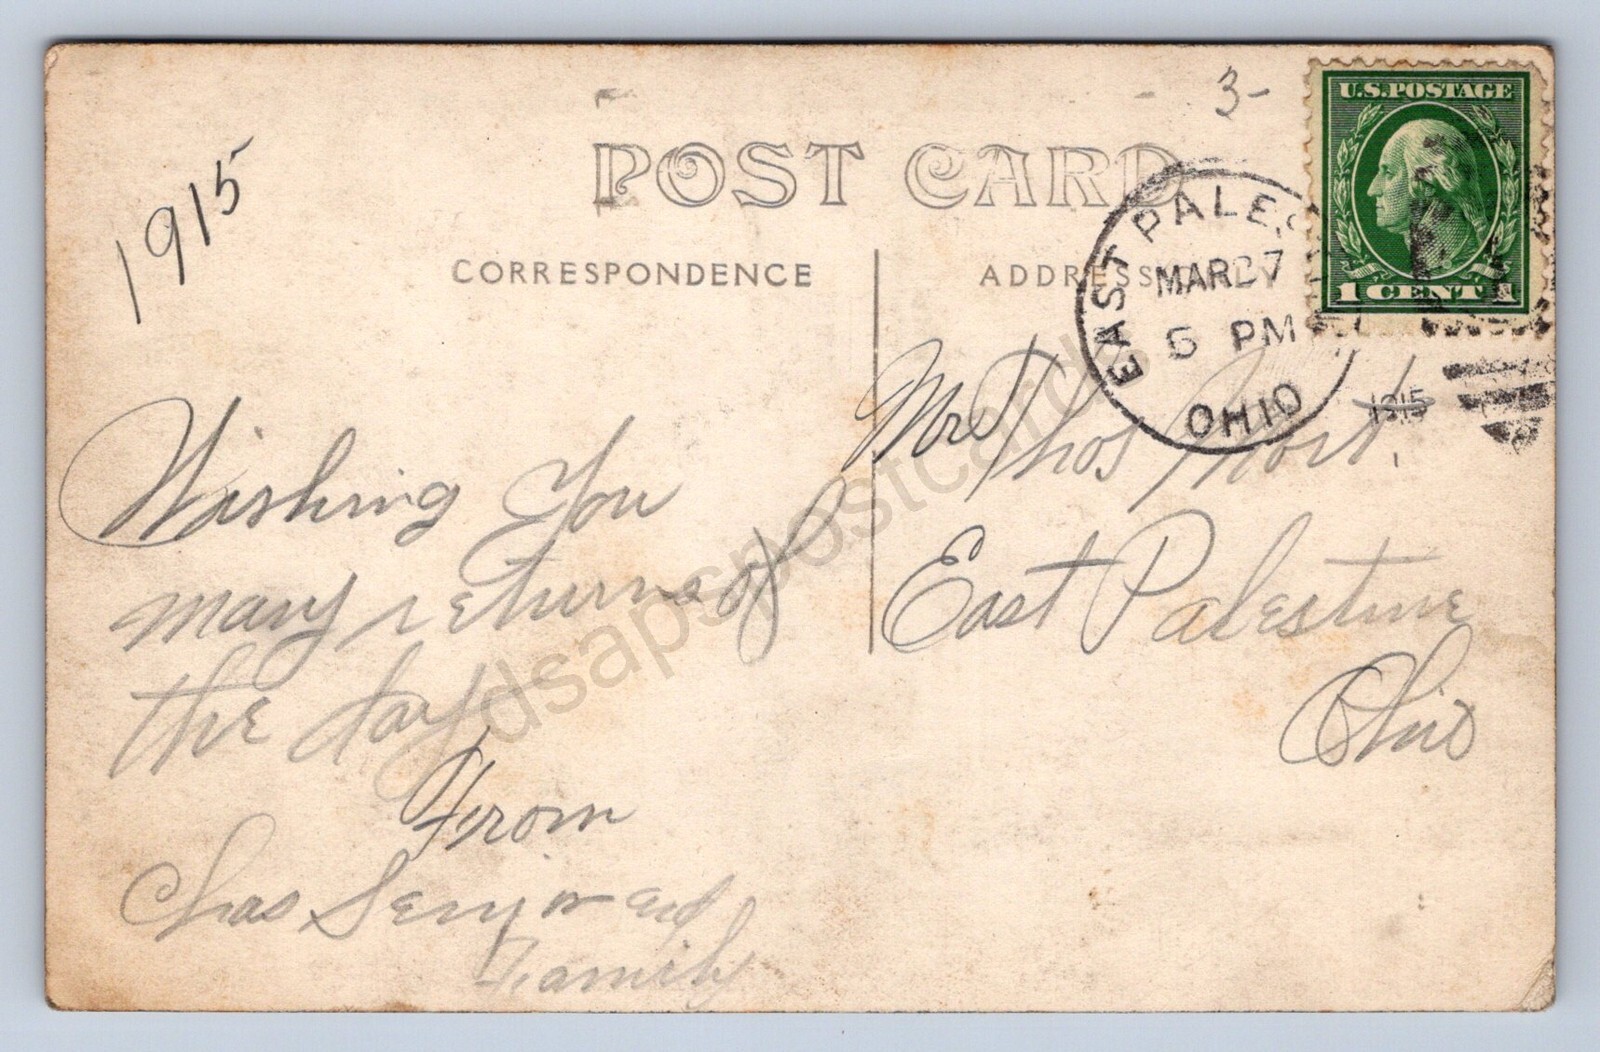 3-
U.S. POSTAGE
1 CENT 1
POST CARD
1915
CORRESPONDENCE
ADDRESS ONLY
EAST PALES
MAR 27
5 PM
OHIO
1915
Wishing You
many returns of
the day
From
Chas
Family
Mr Thos
East Palestine
Ohio
dsapspostcards